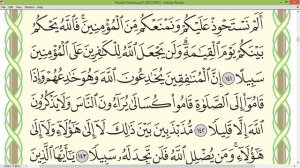 Mushaf Madina.pdf (SECURED) - Adobe Reader
أَلَمْ نَسْتَحْوِذْ عَلَيْكُمْ وَنَمْنَعْكُم مِّنَ ٱلْمُؤْمِنِينَ ۚ فَٱللَّهُ يَحْكُمُ
بَيْنَكُمْ يَوْمَ ٱلْقِيَٰمَةِ ۗ وَلَن يَجْعَلَ ٱللَّهُ لِلْكَٰفِرِينَ عَلَى ٱلْمُؤْمِنِينَ
سَبِيلًا ١٤١ إِنَّ ٱلْمُنَٰفِقِينَ يُخَٰدِعُونَ ٱللَّهَ وَهُوَ خَٰدِعُهُمْ وَإِذَا
قَامُوٓا۟ إِلَى ٱلصَّلَوٰةِ قَامُوا۟ كُسَالَىٰ يُرَآءُونَ ٱلنَّاسَ وَلَا يَذْكُرُونَ
ٱللَّهَ إِلَّا قَلِيلًا ١٤٢ مُّذَبْذَبِينَ بَيْنَ ذَٰلِكَ لَآ إِلَىٰ هَٰٓؤُلَآءِ وَلَآ إِلَىٰ
هَٰٓؤُلَآءِ ۚ وَمَن يُضْلِلِ ٱللَّهُ فَلَن تَجِدَ لَهُۥ سَبِيلًا ١٤٣ يَٰٓأَيُّهَا ٱلَّذِينَ